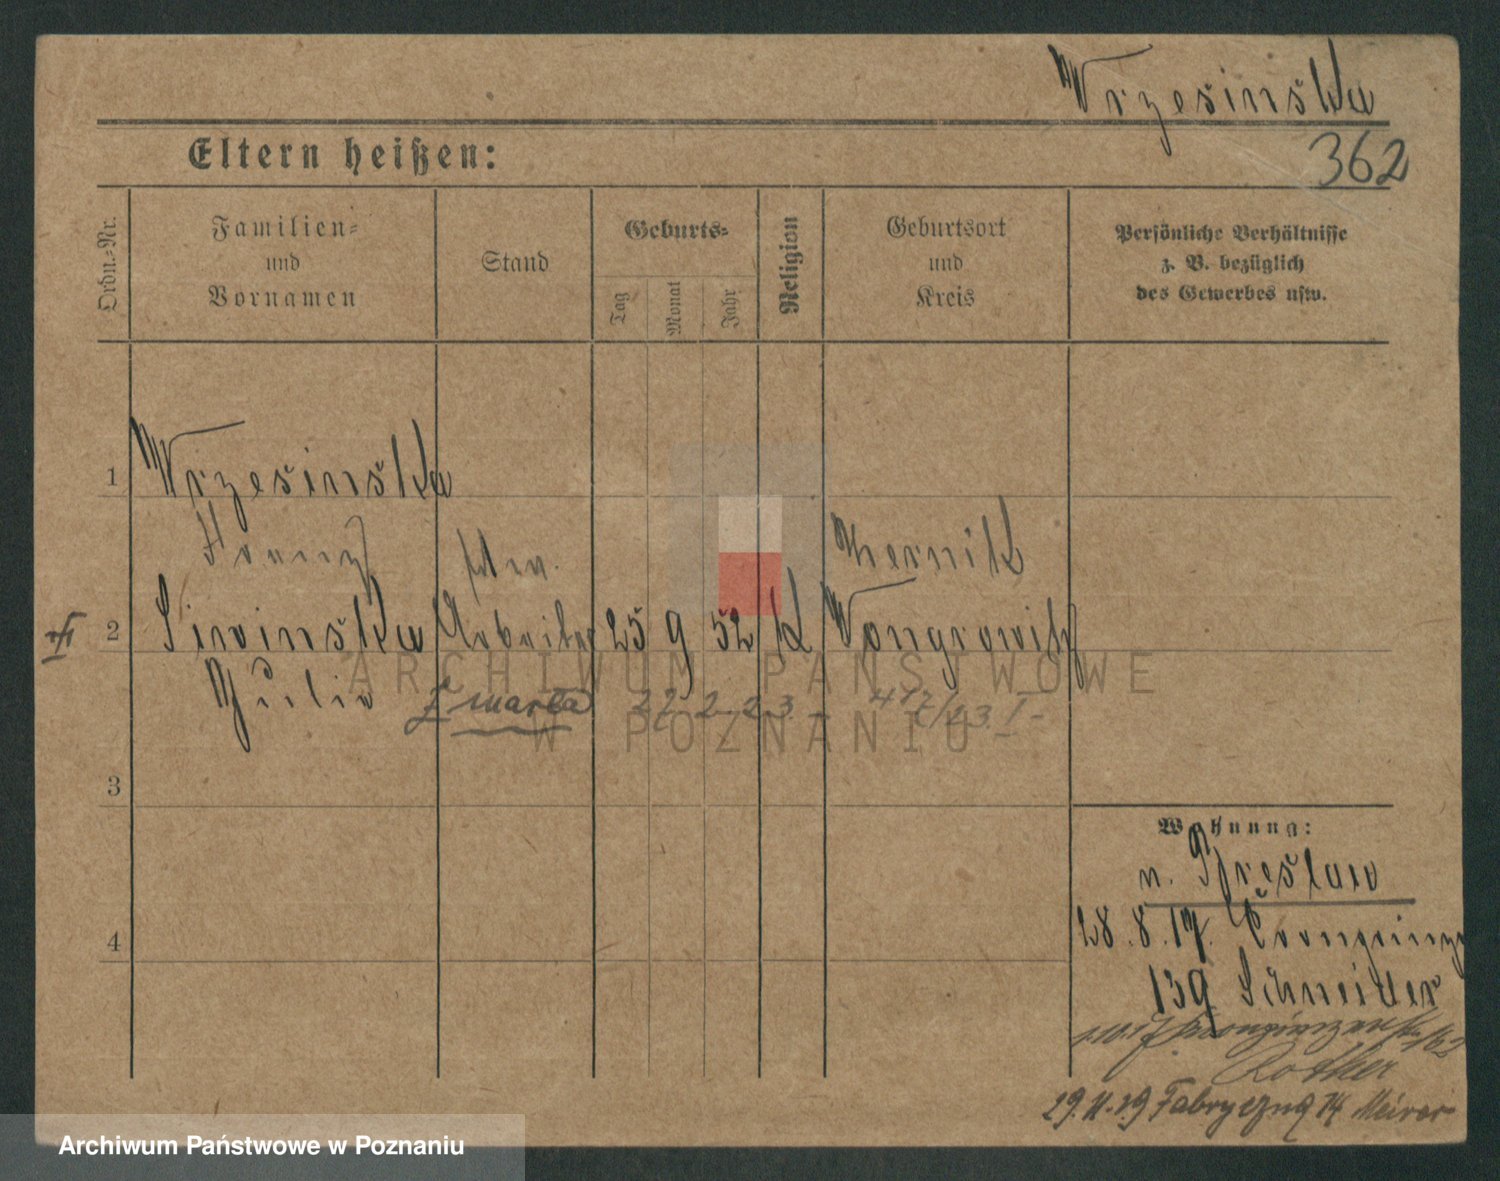 Wrzesinska
362
Eltern heißen:
Ordn.-Nr.
Familien-
und
Vornamen
Stand
Geburts-
Tag
Monat
Jahr
Religion
Geburtsort
und
Kreis
Persönliche Verhältnisse
z. B. bezüglich
des Gewerbes usw.
1
Wrzesinska
Franz
2
Siwinska Arbeiter 25 9 52 K Wongrowitz
Julie
zmarła 22 2 23 417/23 I
ARCHIWUM PAŃSTWOWE
W POZNANIU
3
4
Wohnung:
n. Breslau
28.8.17.
139 Schneider
Rother
29.11.19 Fabryczna 14
Archiwum Państwowe w Poznaniu